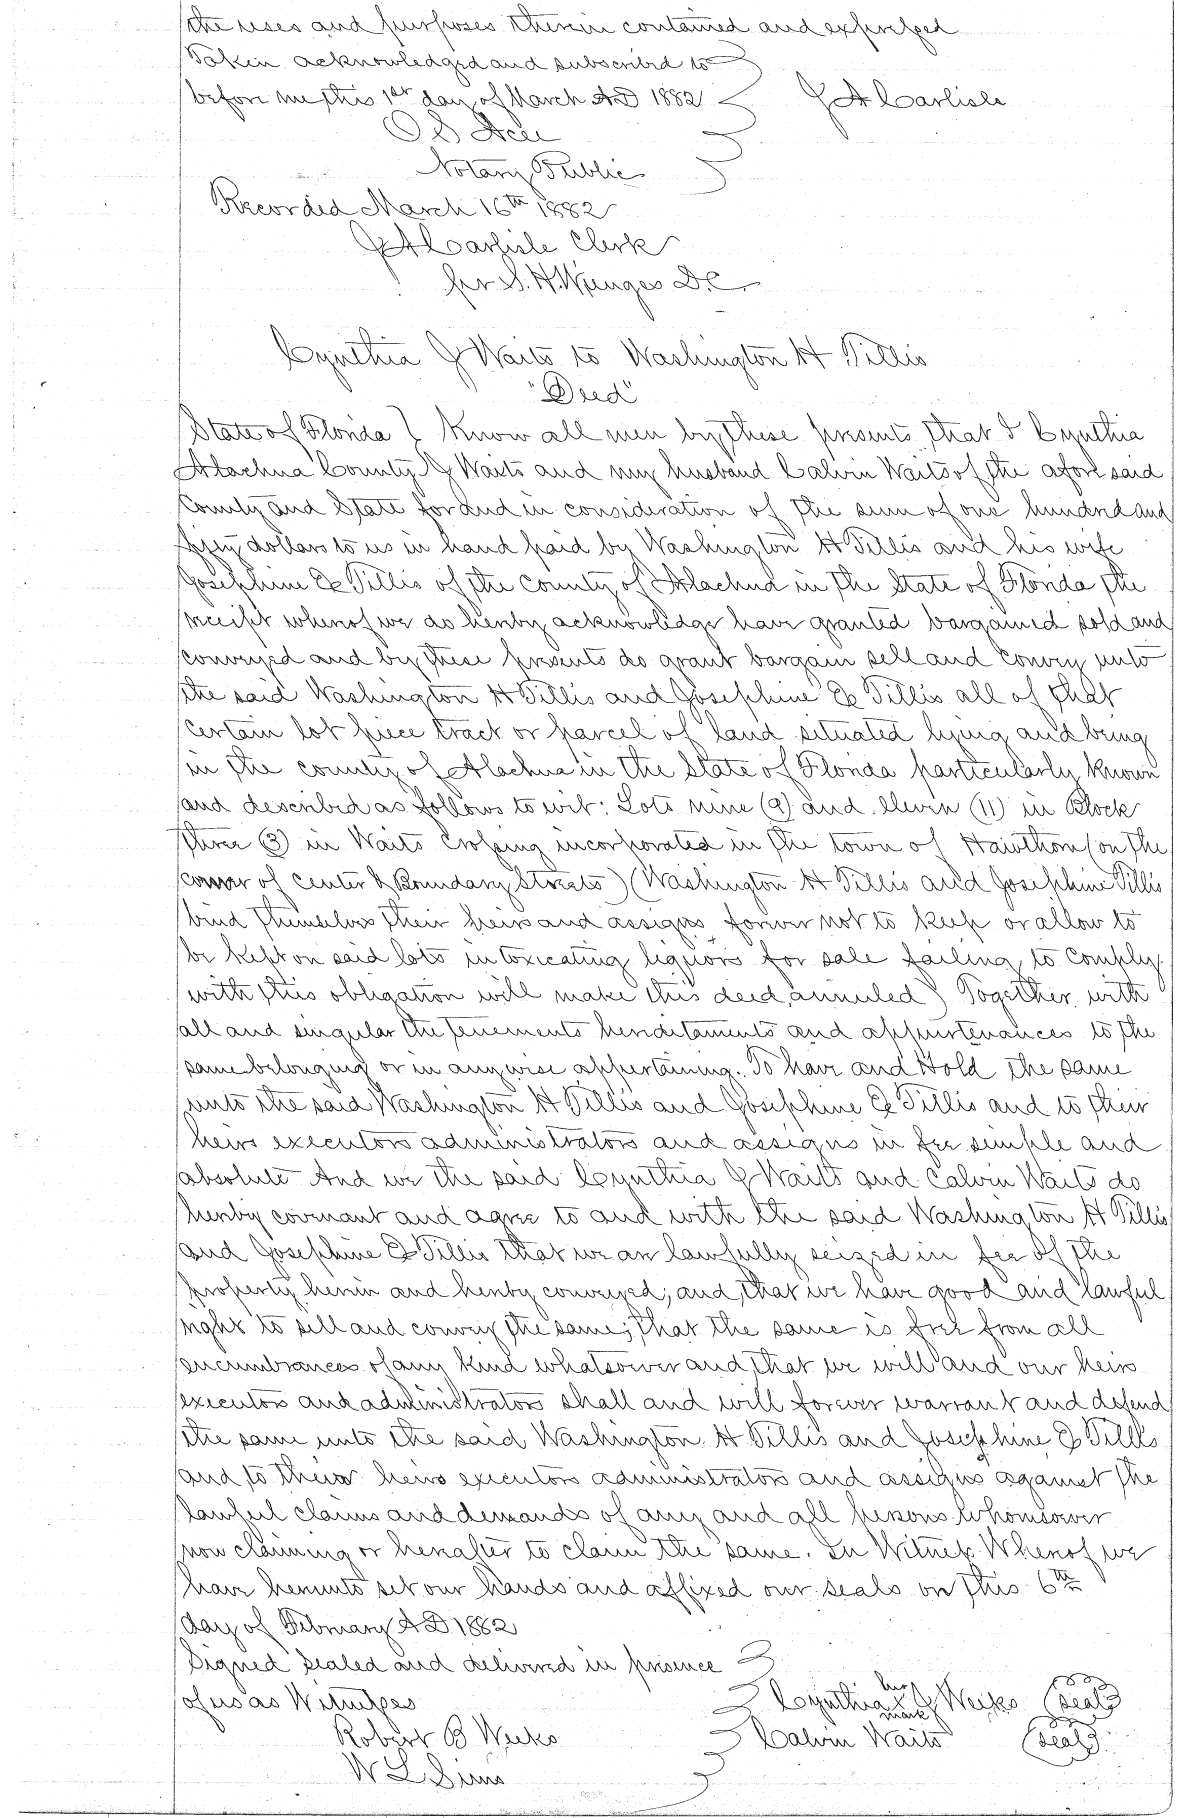 the uses and purposes therein contained and expressed
Taken acknowledged and subscribed to
before me this 1st day of March AD 1882 J A Carlisle
O S Acee
Notary Public
Recorded March 16th 1882
J A Carlisle Clerk
per S. H. Wienges D.C.
Cynthia J Waits to Washington H Tillis
"Deed"
State of Florida } Know all men by these presents that I Cynthia
Alachua County J Waits and my husband Calvin Waits of the afore said
County and State for and in consideration of the sum of one hundred and
fifty dollars to us in hand paid by Washington H Tillis and his wife
Josephine E Tillis of the County of Alachua in the State of Florida the
receipt whereof we do hereby acknowledge have granted bargained sold and
conveyed and by these presents do grant bargain sell and convey unto
the said Washington H Tillis and Josephine E Tillis all of that
certain lot piece tract or parcel of land situated lying and being
in the county of Alachua in the State of Florida particularly known
and described as follows to wit: Lots nine (9) and eleven (11) in Block
three (3) in Waits Crossing incorporated in the town of Hawthorn (on the
corner of Center & Boundary Streets) (Washington H Tillis and Josephine Tillis
bind themselves their heirs and assigns forever not to keep or allow to
be kept on said lots intoxicating liquors for sale failing to comply
with this obligation will make this deed annuled) Together with
all and singular the tenements hereditaments and appurtenances to the
same belonging or in anywise appertaining. To have and Hold the same
unto the said Washington H Tillis and Josephine E Tillis and to their
heirs executors administrators and assigns in fee simple and
absolute And we the said Cynthia J Waits and Calvin Waits do
hereby covenant and agree to and with the said Washington H Tillis
and Josephine E Tillis that we are lawfully seized in fee of the
property herein and hereby conveyed; and that we have good and lawful
right to sell and convey the same; that the same is free from all
encumbrances of any kind whatsoever and that we will and our heirs
executors and administrators shall and will forever warrant and defend
the same unto the said Washington H Tillis and Josephine E Tillis
and to their heirs executors administrators and assigns against the
lawful claims and demands of any and all persons whomsoever
now claiming or hereafter to claim the same. In Witness Whereof we
have hereunto set our hands and affixed our seals on this 6th
day of February AD 1882
Signed sealed and delivered in presence
of us as Witnesses Cynthia her x mark J Weeks (seal)
Robert B Weeks Calvin Waits (seal)
W L Sims